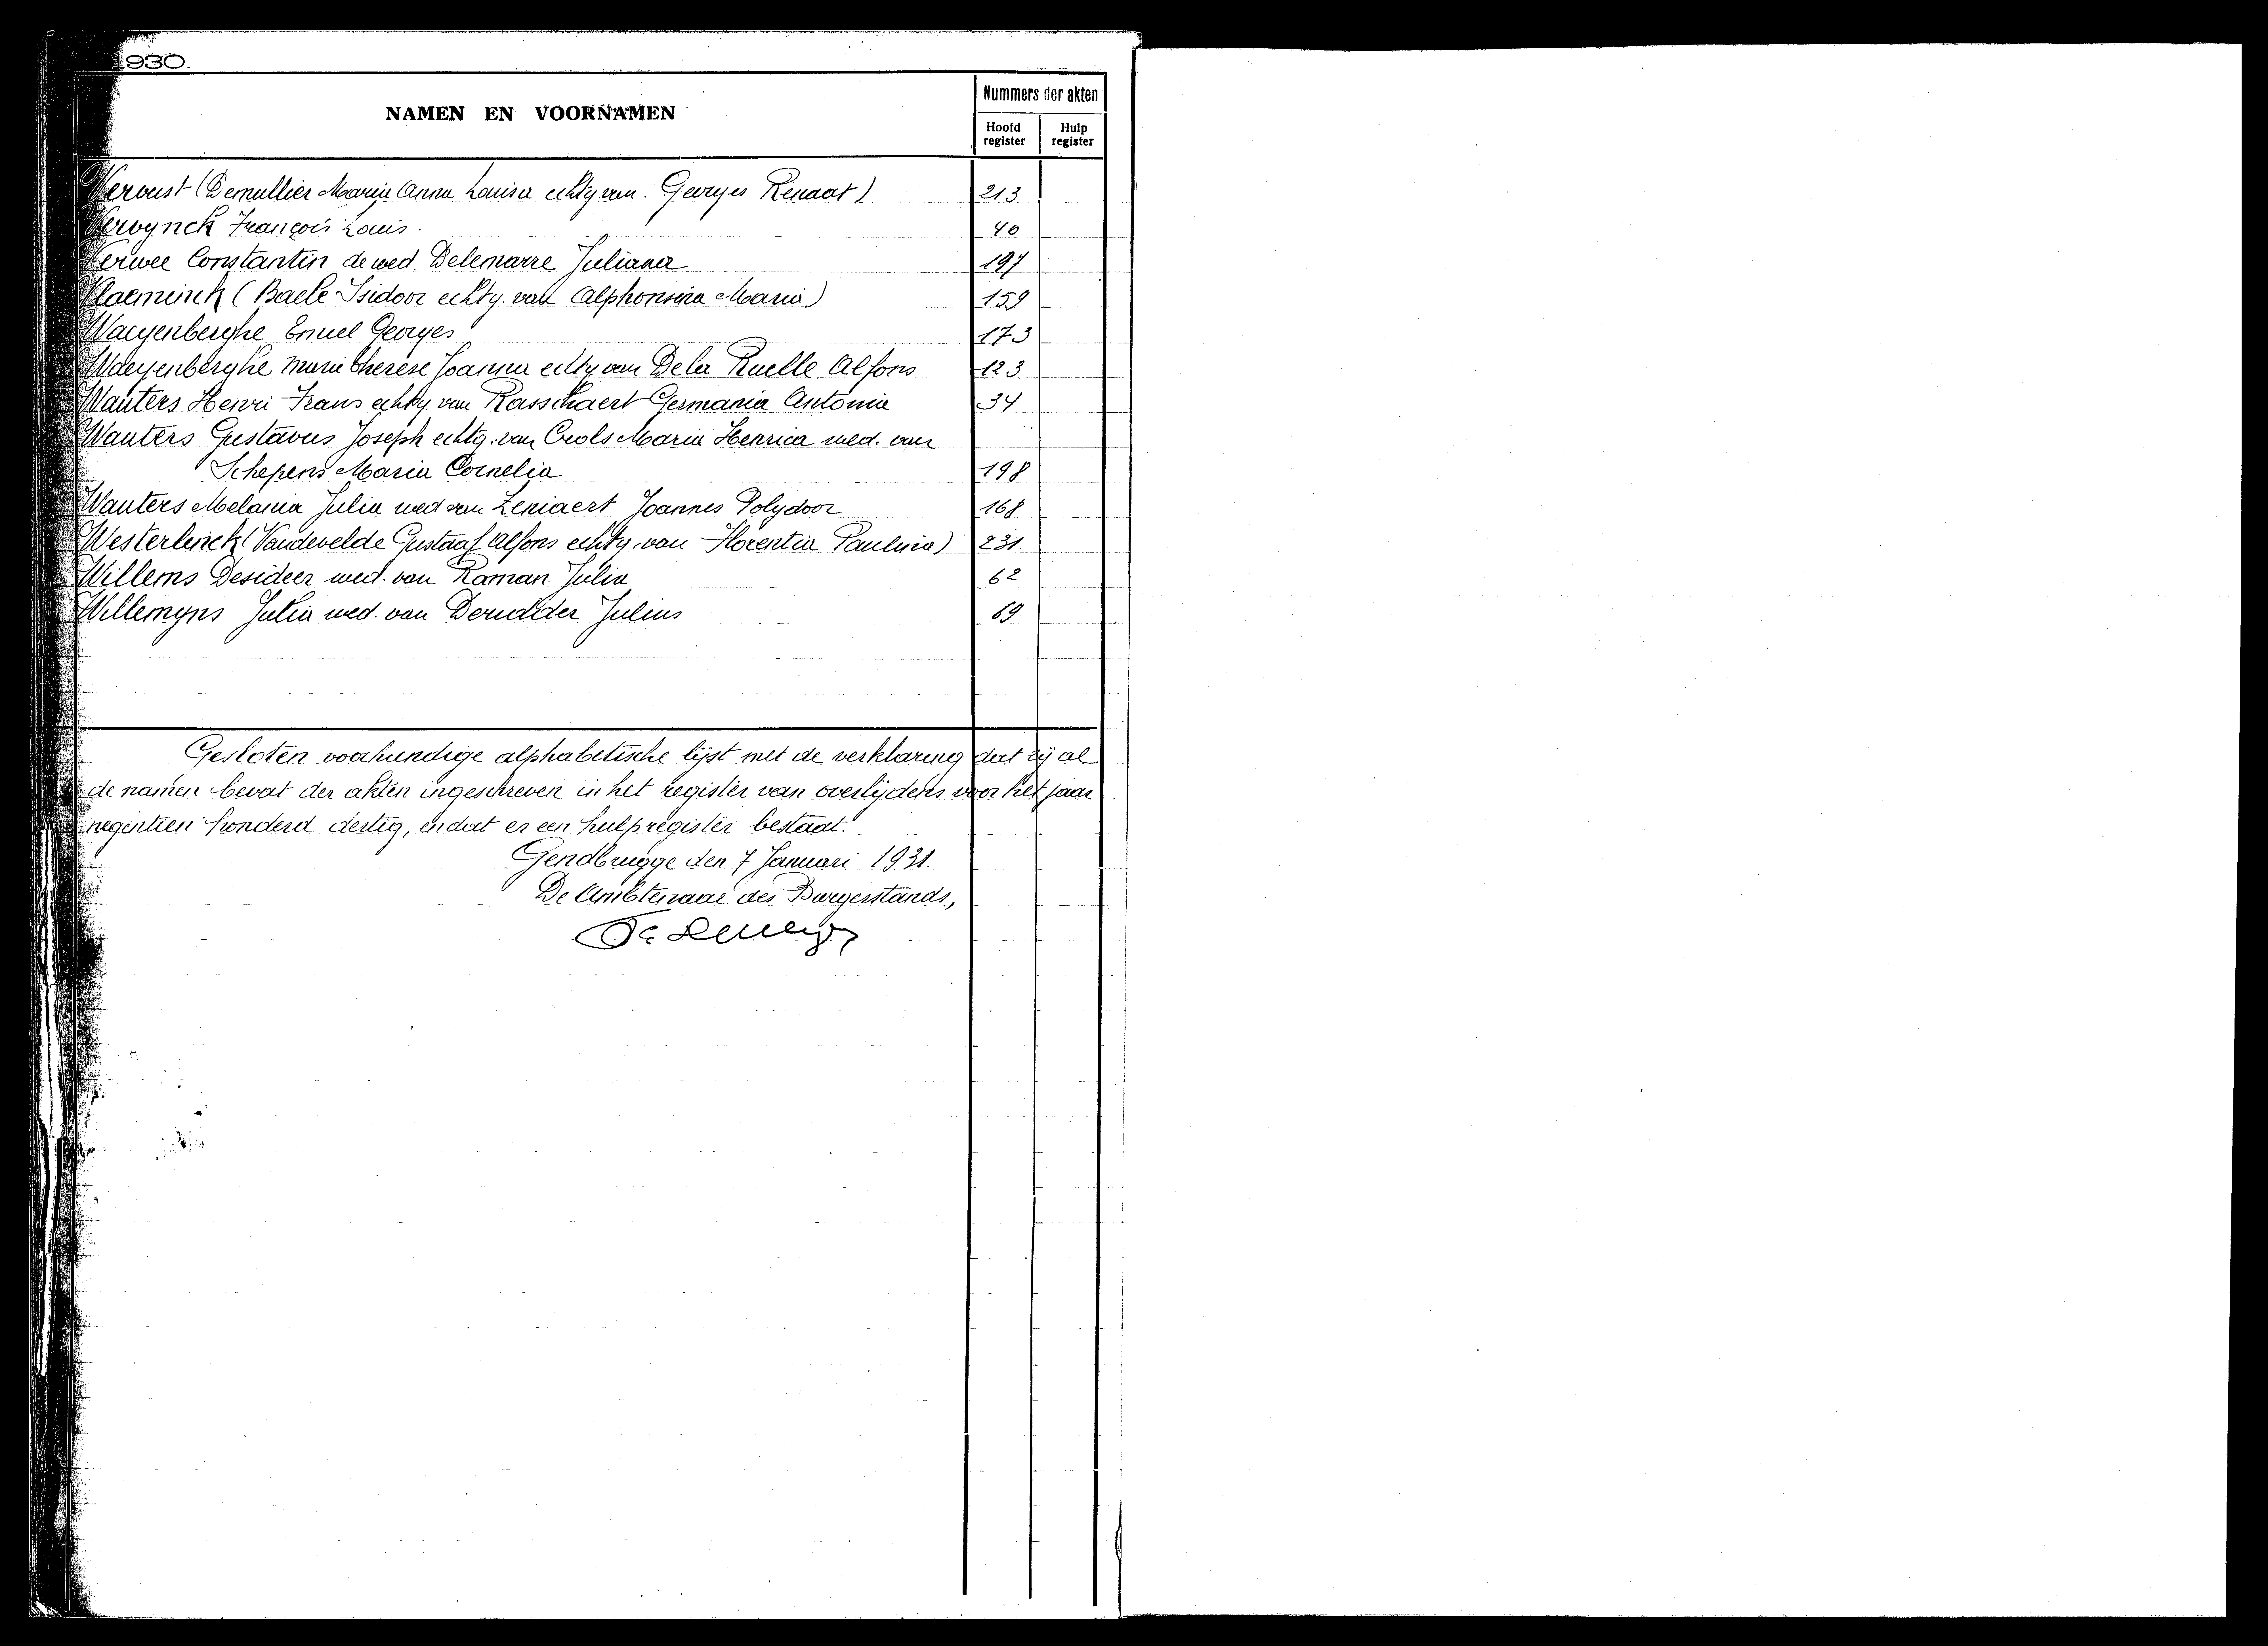 1930.
NAMEN EN VOORNAMEN
Nummers der akten
Hoofd register
Hulp register
Vervust (Demullier Maria Anna Louisa echtg. van Georges Renaat) 213
Verwynck François Louis. 40
Verwee Constantin de wed. Delemarre Juliana 197
Vlaeminck (Baele Isidoor echtg. van Alphonsina Maria) 159
Waeyenberghe Emiel Georges 173
Waeyenberghe Marie Therese Joanna echtg. van Dela Ruelle Alfons 123
Wauters Henri Frans echtg. van Rasschaert Germania Antonia 34
Wauters Gustavus Joseph echtg. van Crols Maria Henrica wed. van
Schepens Maria Cornelia 198
Wauters Melania Julia wed van Zeniaert Joannes Polydoor 168
Westerlinck (Vandevelde Gustaaf Alfons echtg. van Florentia Paulina) 231
Willems Desideer wed. van Raman Julia 62
Willemyns Julia wed. van Derudder Julius 69
Gesloten voorhundige alphabetische lijst met de verklaring dat zij al
de namen bevat der akten ingeschreven in het register van overlijdens voor het jaar
negentien honderd dertig, en dat er een hulpregister bestaat.
Gendbrugge den 7 Januari 1931.
De Ambtenaar des Burgerstands,